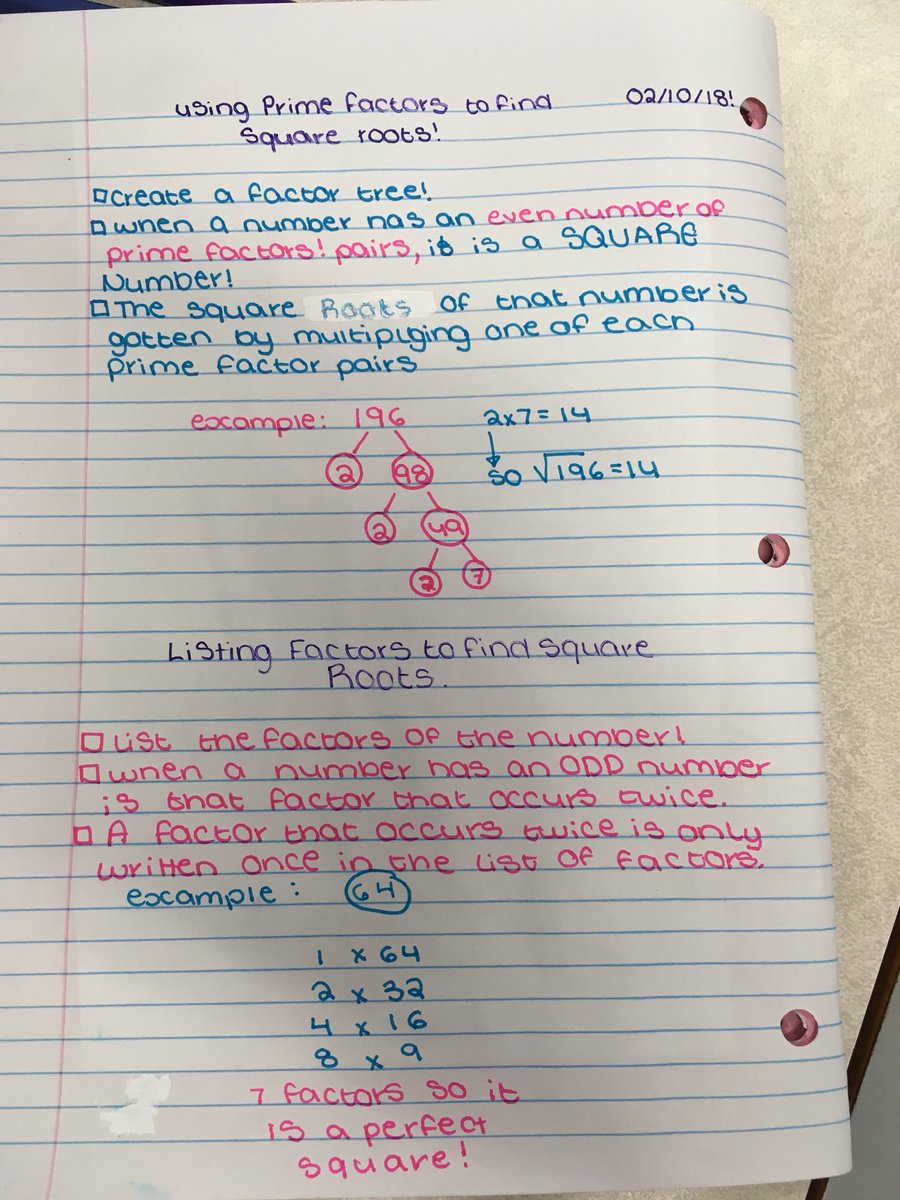 using Prime factors to find
02/10/18!
Square roots!
create a factor tree!
when a number has an even number of
prime factors! pairs, it is a SQUARE
Number!
The square Roots of that number is
gotten by multiplying one of each
prime factor pairs
example: 196
2x7=14
2 98
so √196=14
2 49
2 7
Listing Factors to find square
Roots.
List the factors of the number!
when a number has an ODD number
is that factor that occurs twice.
A factor that occurs twice is only
written once in the list of factors.
example: 64
1 x 64
2 x 32
4 x 16
8 x 9
7 factors so it
is a perfect
square!